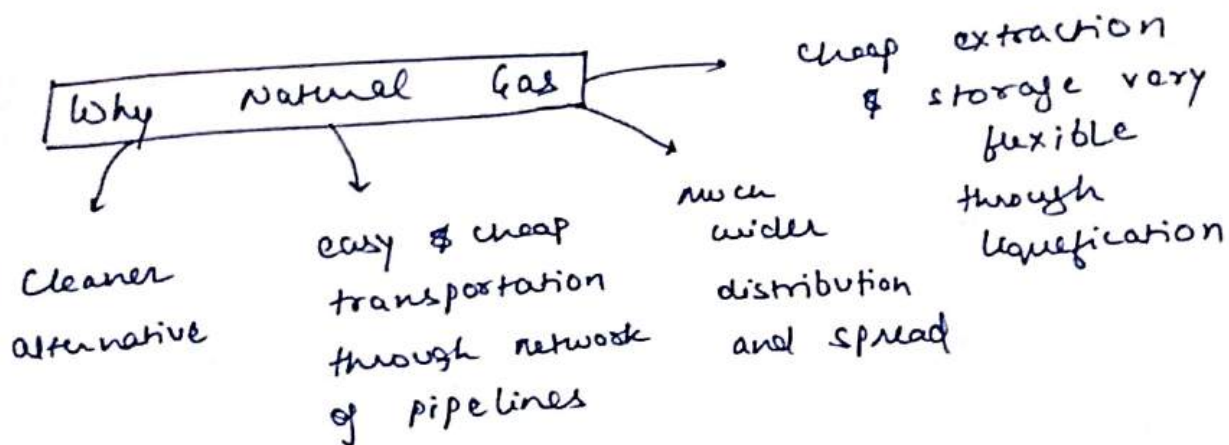 Why Natural Gas
Cleaner
alternative
easy & cheap
transportation
through network
of pipelines
much
wider
distribution
and spread
cheap extraction
& storage very
flexible
through
liquefication